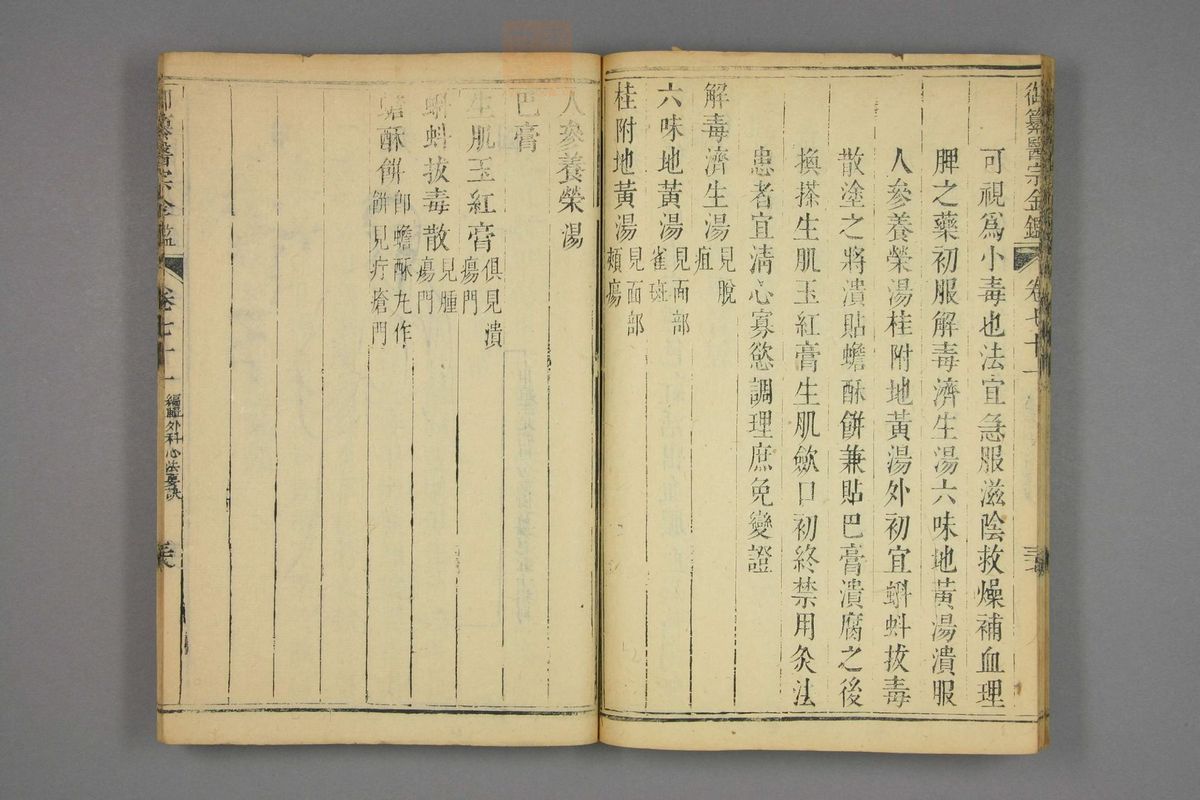 御纂醫宗金鑑 卷七十一
可視爲小毒也法宜急服滋陰救燥補血理
脾之藥初服解毒濟生湯六味地黃湯潰服
人參養榮湯桂附地黃湯外初宜蝌蚪拔毒
散塗之將潰貼蟾酥餅兼貼巴膏潰腐之後
換搽生肌玉紅膏生肌歛口初終禁用灸法
患者宜清心寡慾調理庶免變證
解毒濟生湯見脫疽
六味地黃湯見面部雀斑
桂附地黃湯見面部頰瘍
人參養榮湯
巴膏
生肌玉紅膏俱見潰瘍門
蝌蚪拔毒散見腫瘍門
蟾酥餅卽蟾酥丸作餅見疔瘡門
御纂醫宗金鑑 卷七十一 編輯外科心法要訣